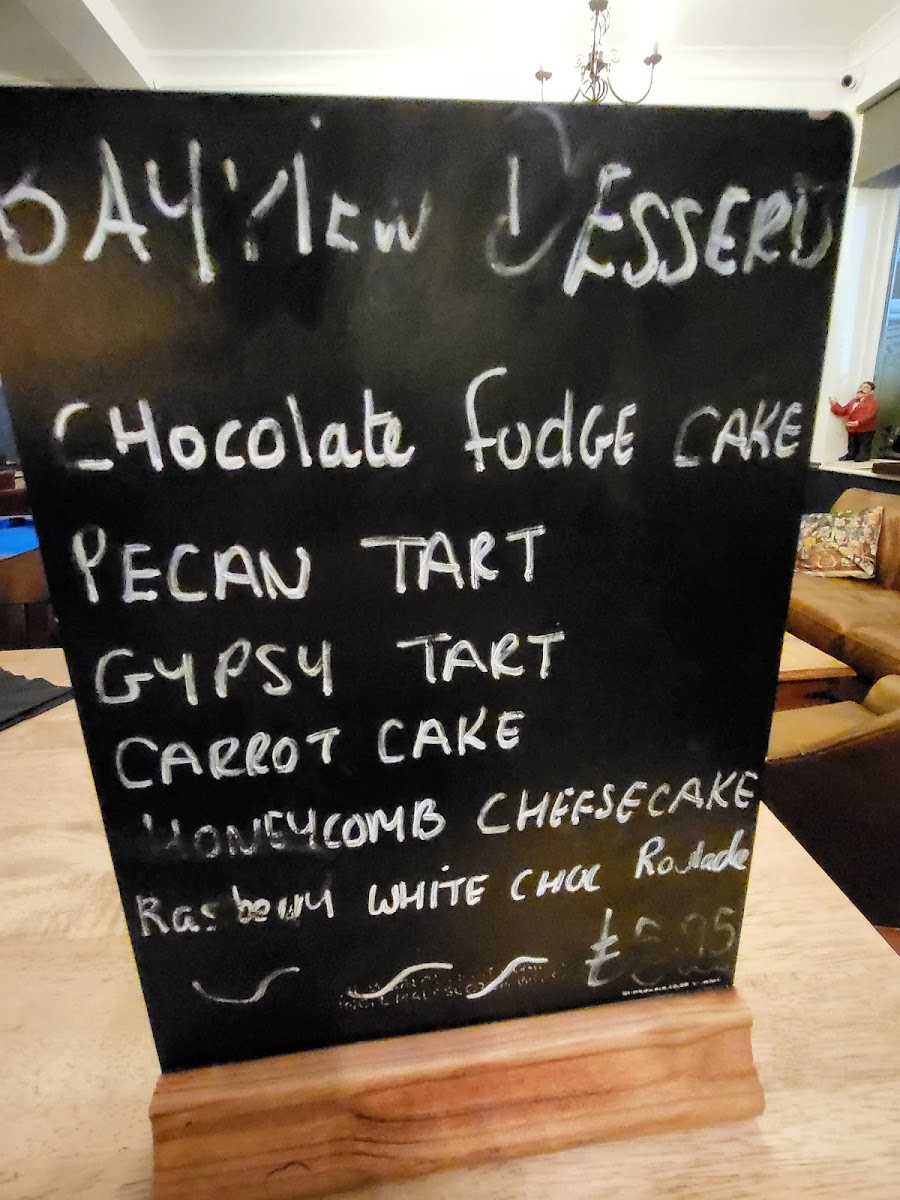 BAYView DESSERTS
CHocolate fudGE CAKE
PECAN TART
GYPSY TART
CARROT CAKE
HONEYCOMB CHEESECAKE
Rasberry WHITE CHOC Roulade
£5.95